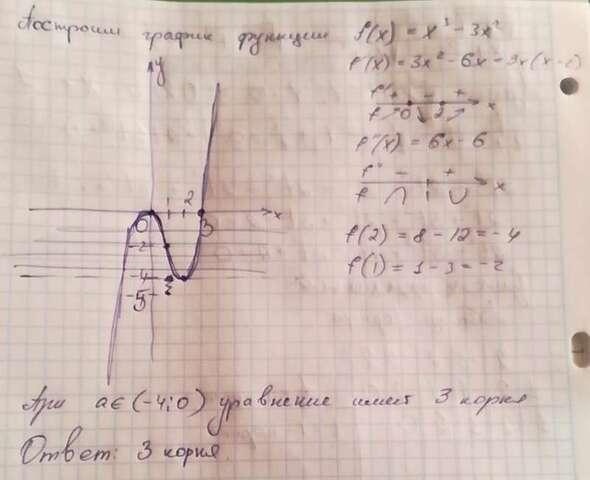 Построим график функции f(x) = x³ - 3x²
f'(x) = 3x² - 6x = 3x(x-2)
f' + - +
f 0 2 x
f''(x) = 6x - 6
f'' - +
f 1 x
f(2) = 8 - 12 = -4
f(1) = 1 - 3 = -2
y
1 2
0 3 x
-2
-4
-5
При a∈(-4;0) уравнение имеет 3 корня
Ответ: 3 корня.